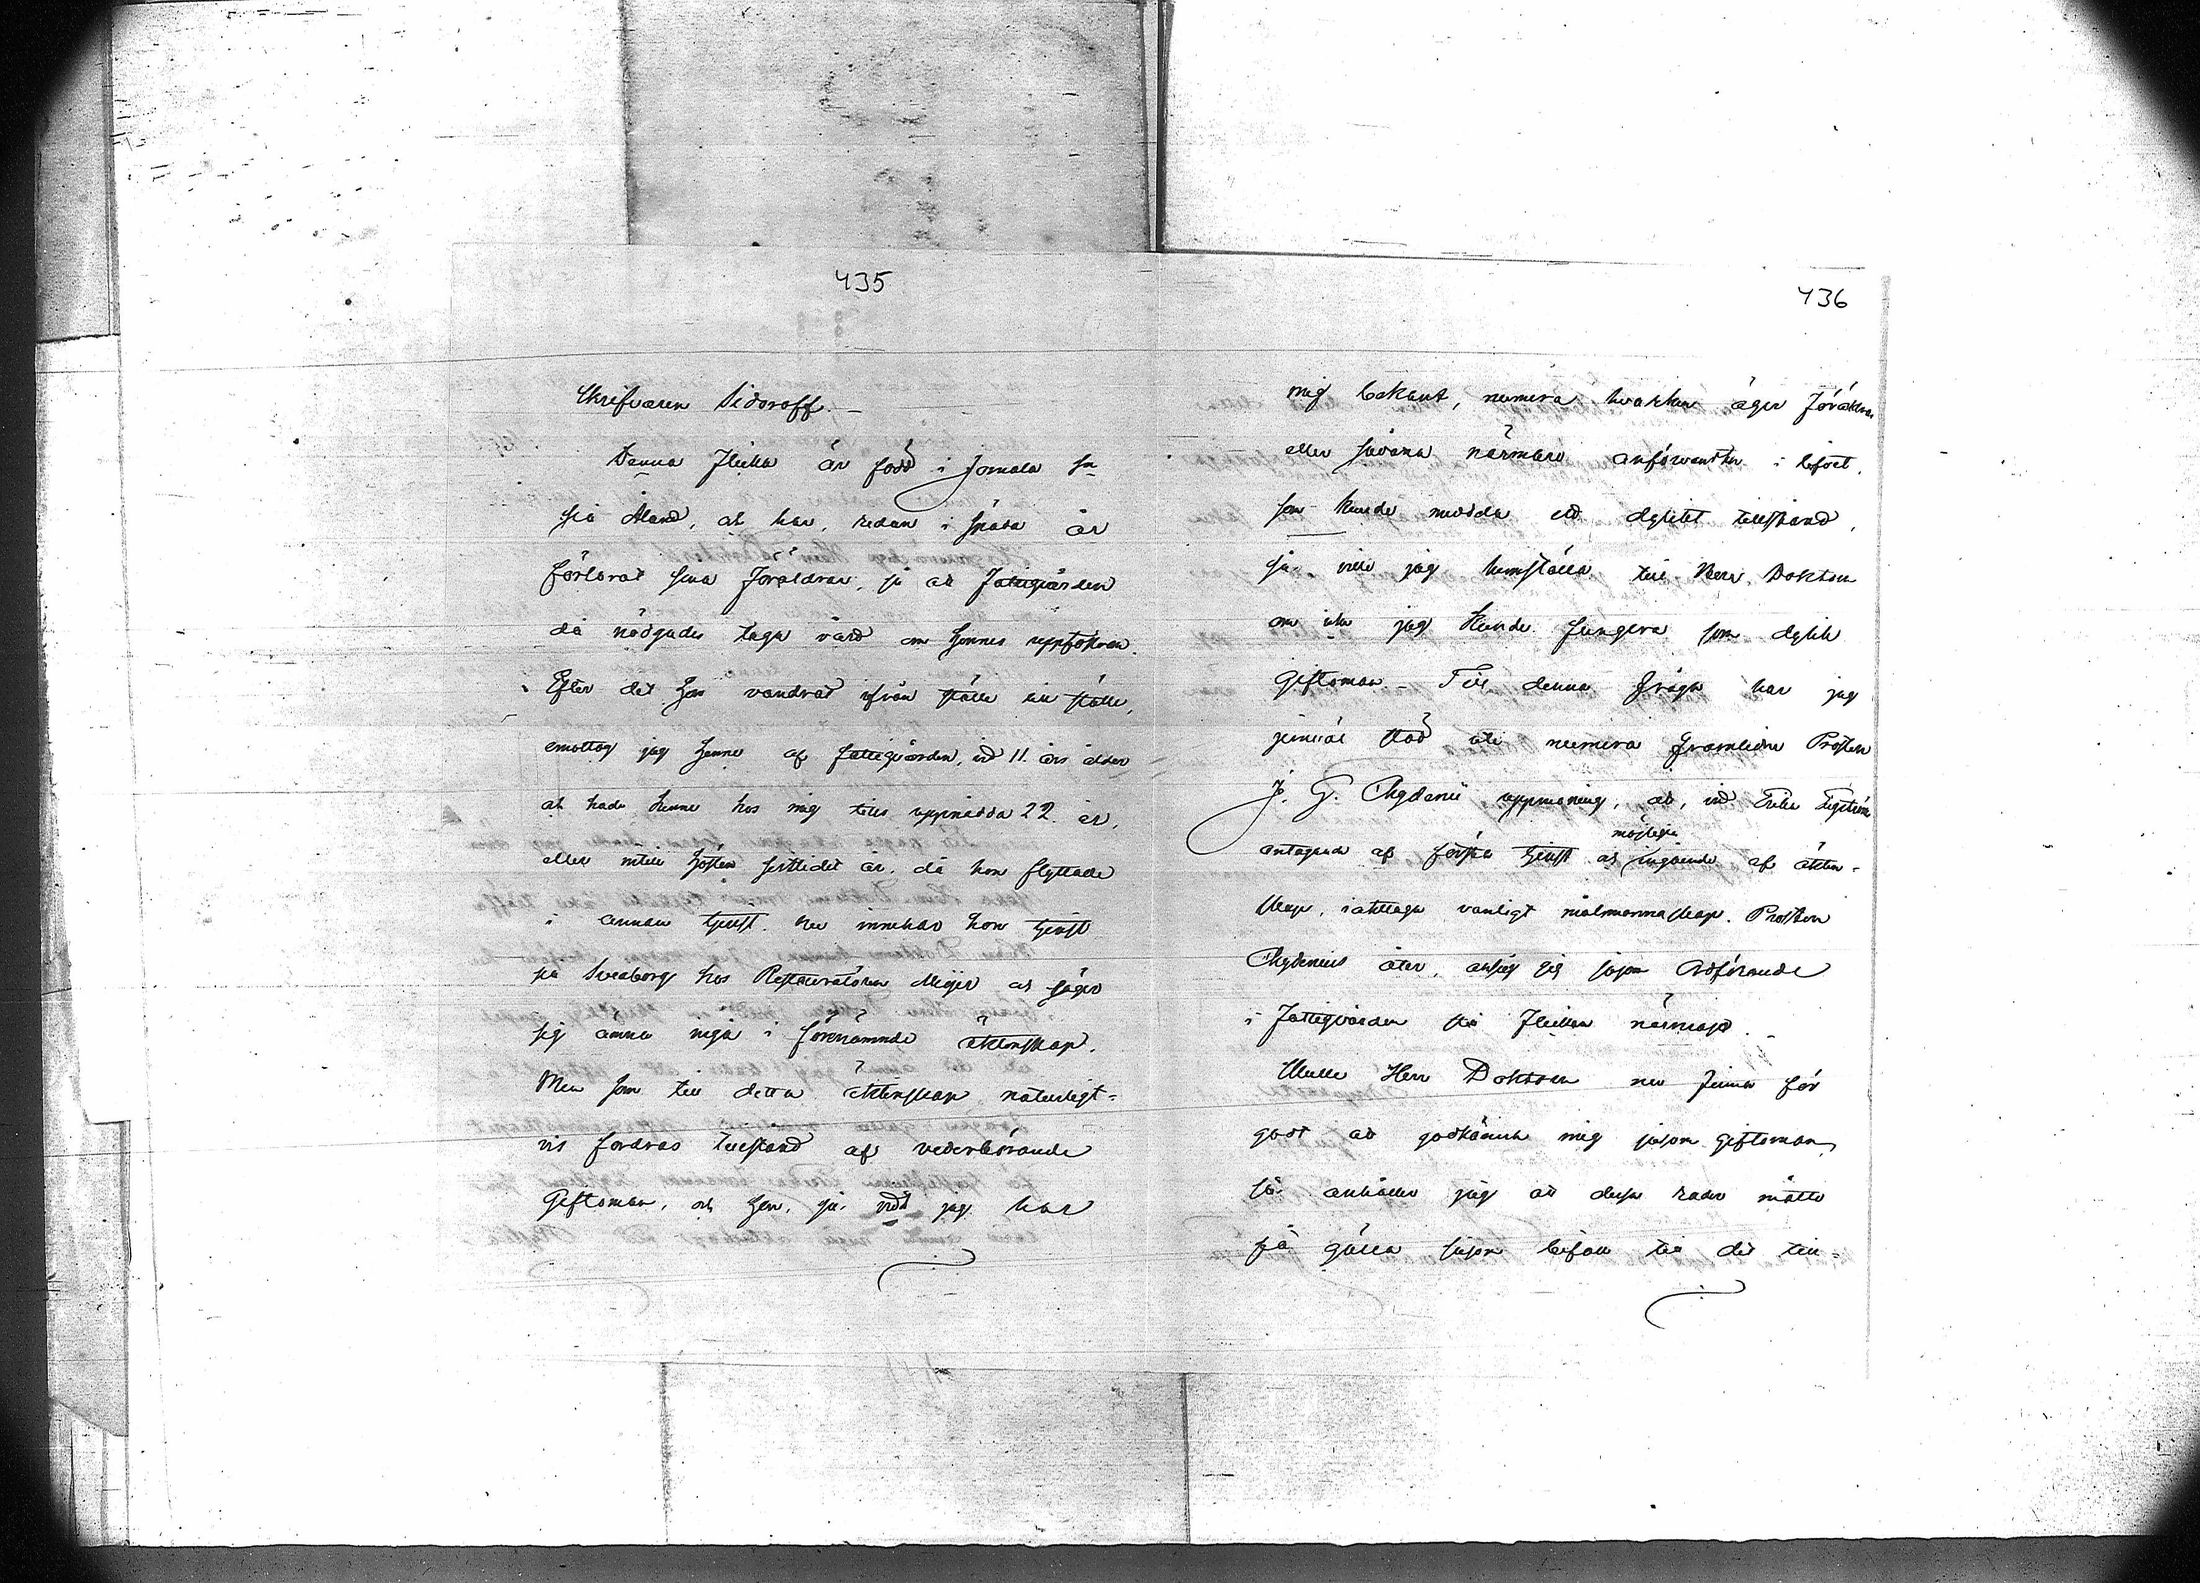 435
Skrifvaren Sidoroff. –
Denna Flicka är född i Jomala sn
på Åland, at har, redan i späda år
förlorat sina Föräldrar, så at Fattigvården
då nödgades taga vård om hennes uppfostran.
Efter det hon vandrat ifrån ställe till ställe,
emottog jag henne af fattigvården, vid 11. års ålder
at hade henne hos mig tills uppnådda 22. år,
eller intill hösten sistlidet år, då hon flyttade
i annan tjenst. Nu innehar hon tjenst
på Sveaborg hos Restauratören Meijer at säger
sig ämna ingå i förenämnde äktenskap.
Men som till detta äktenskap naturligt-
vis fordras tillstånd af vederbörande
Giftoman, och hon, så vidt jag har
436
mig bekant, numera hvarken äger Föräldrar
eller sådana närmare anförvanter i lifvet,
som kunde medda ett dylikt tillstånd,
så ville jag hemställa till Herr Doktorn
om icke jag kunde fungera som dylik
Giftoman – Till denna fråga har jag
jemväl stöd uti numera framlidne Prosten
J. G. Chydenii uppmaning, at, vid Erika
antagande af första tjenst at möjligen ingående af äkten-
skap, iakttaga vanligt målsmannaskap. Prosten
Chydenius åter, ansåg sig såsom Ordförande
i Fattigvården stå Flickan närmast.
Skulle Herr Doktorn nu finna för
godt at godkänna mig såsom giftoman,
så anhåller jag at dessa rader måtte
få gälla såsom bifall till det till-